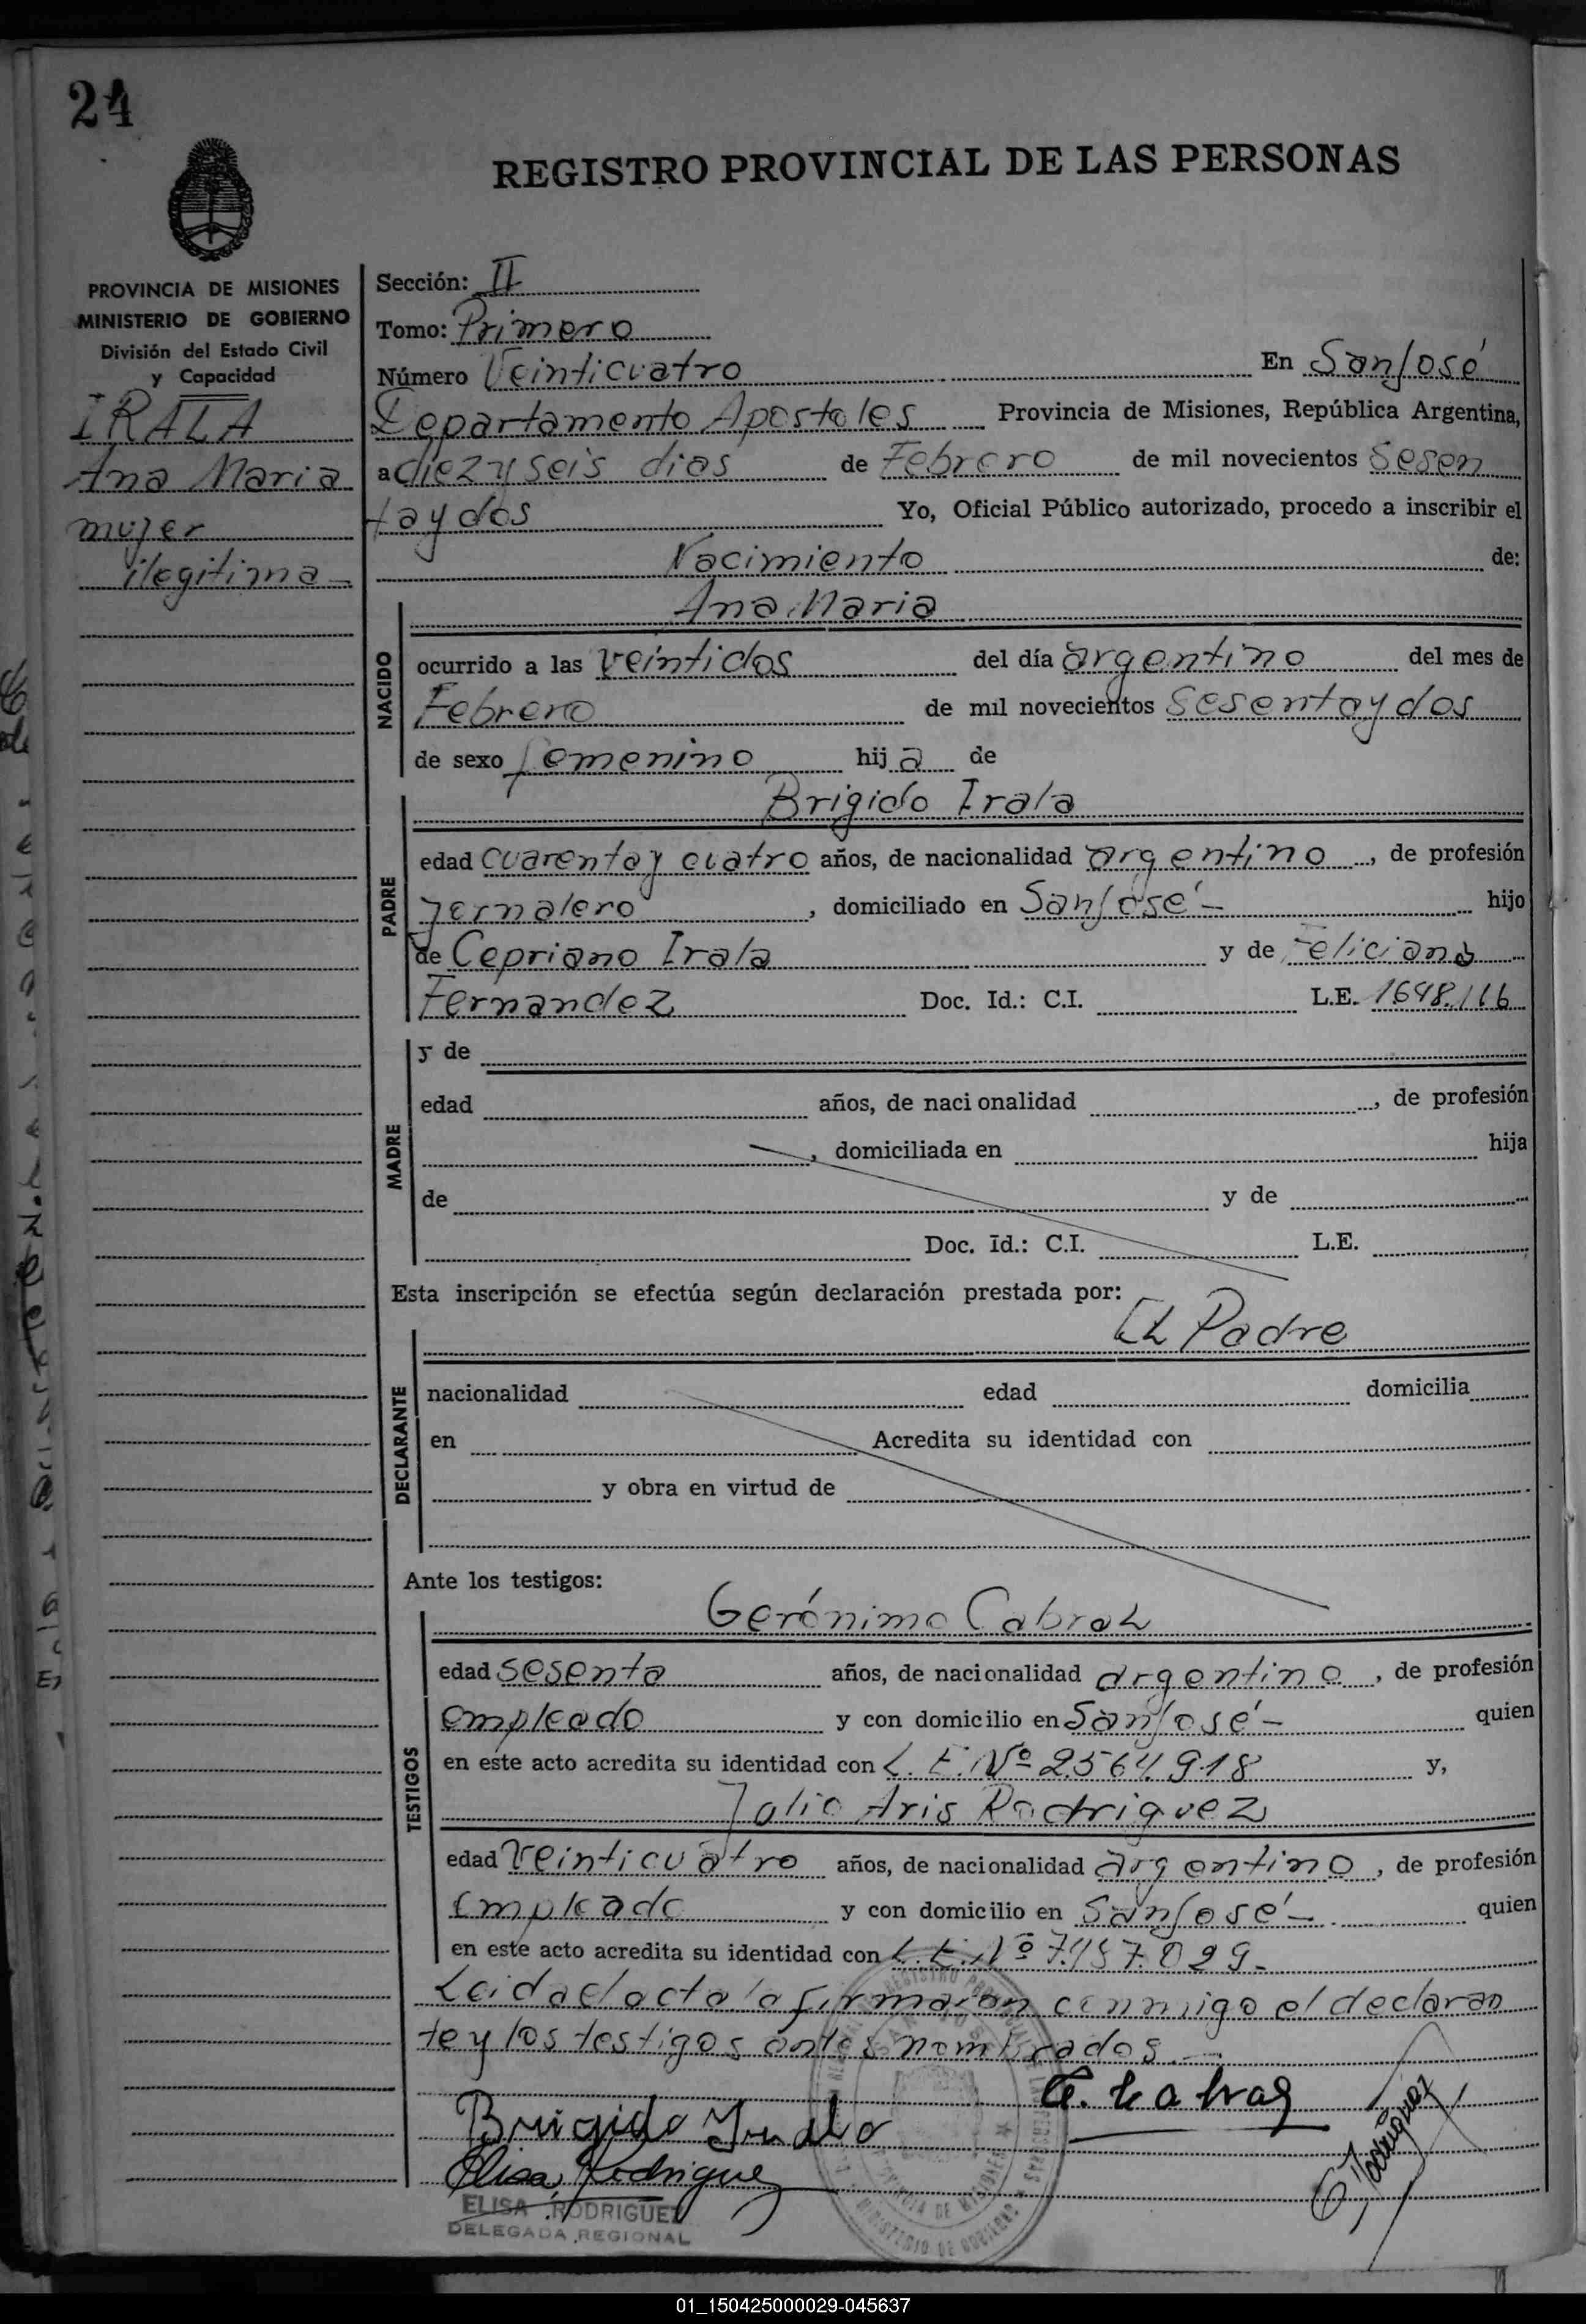 24
REGISTRO PROVINCIAL DE LAS PERSONAS
PROVINCIA DE MISIONES
MINISTERIO DE GOBIERNO
División del Estado Civil
y Capacidad
IRALA
Ana Maria
mujer
ilegitima
Sección: II
Tomo: Primero
Número Veinticuatro En San José
Departamento Apostoles Provincia de Misiones, República Argentina,
a diez y seis dias de Febrero de mil novecientos Sesen
tay dos Yo, Oficial Público autorizado, procedo a inscribir el
Nacimiento de:
NACIDO
Ana Maria
ocurrido a las veintidos del día argentino del mes de
Febrero de mil novecientos Sesentay dos
de sexo femenino hij a de
PADRE
Brigido Irala
edad cuarentay cuatro años, de nacionalidad argentino, de profesión
jornalero, domiciliado en San José - hijo
de Cepriano Irala y de Feliciana
Fernandez Doc. Id.: C.I. L.E. 1648.116
MADRE
y de
edad años, de nacionalidad , de profesión
, domiciliada en hija
de y de
Doc. Id.: C.I. L.E.
Esta inscripción se efectúa según declaración prestada por:
DECLARANTE
El Padre
nacionalidad edad domicilia
en Acredita su identidad con
y obra en virtud de
Ante los testigos:
TESTIGOS
Gerónimo Cabral
edad sesenta años, de nacionalidad argentino, de profesión
empleado y con domicilio en San José - quien
en este acto acredita su identidad con L.E. Nº 2564918 y,
Aris Rodriguez
edad Veinticuatro años, de nacionalidad argentino, de profesión
Empleado y con domicilio en San José - quien
en este acto acredita su identidad con L.E. Nº 7.457.029.
Leida el acta la firmaron conmigo el declaran
te y los testigos antes nombrados.-
Brigido Irala
G. Cabral
Rodriguez
Elisa Rodriguez
ELISA RODRIGUEZ
DELEGADA REGIONAL
01_150425000029-045637